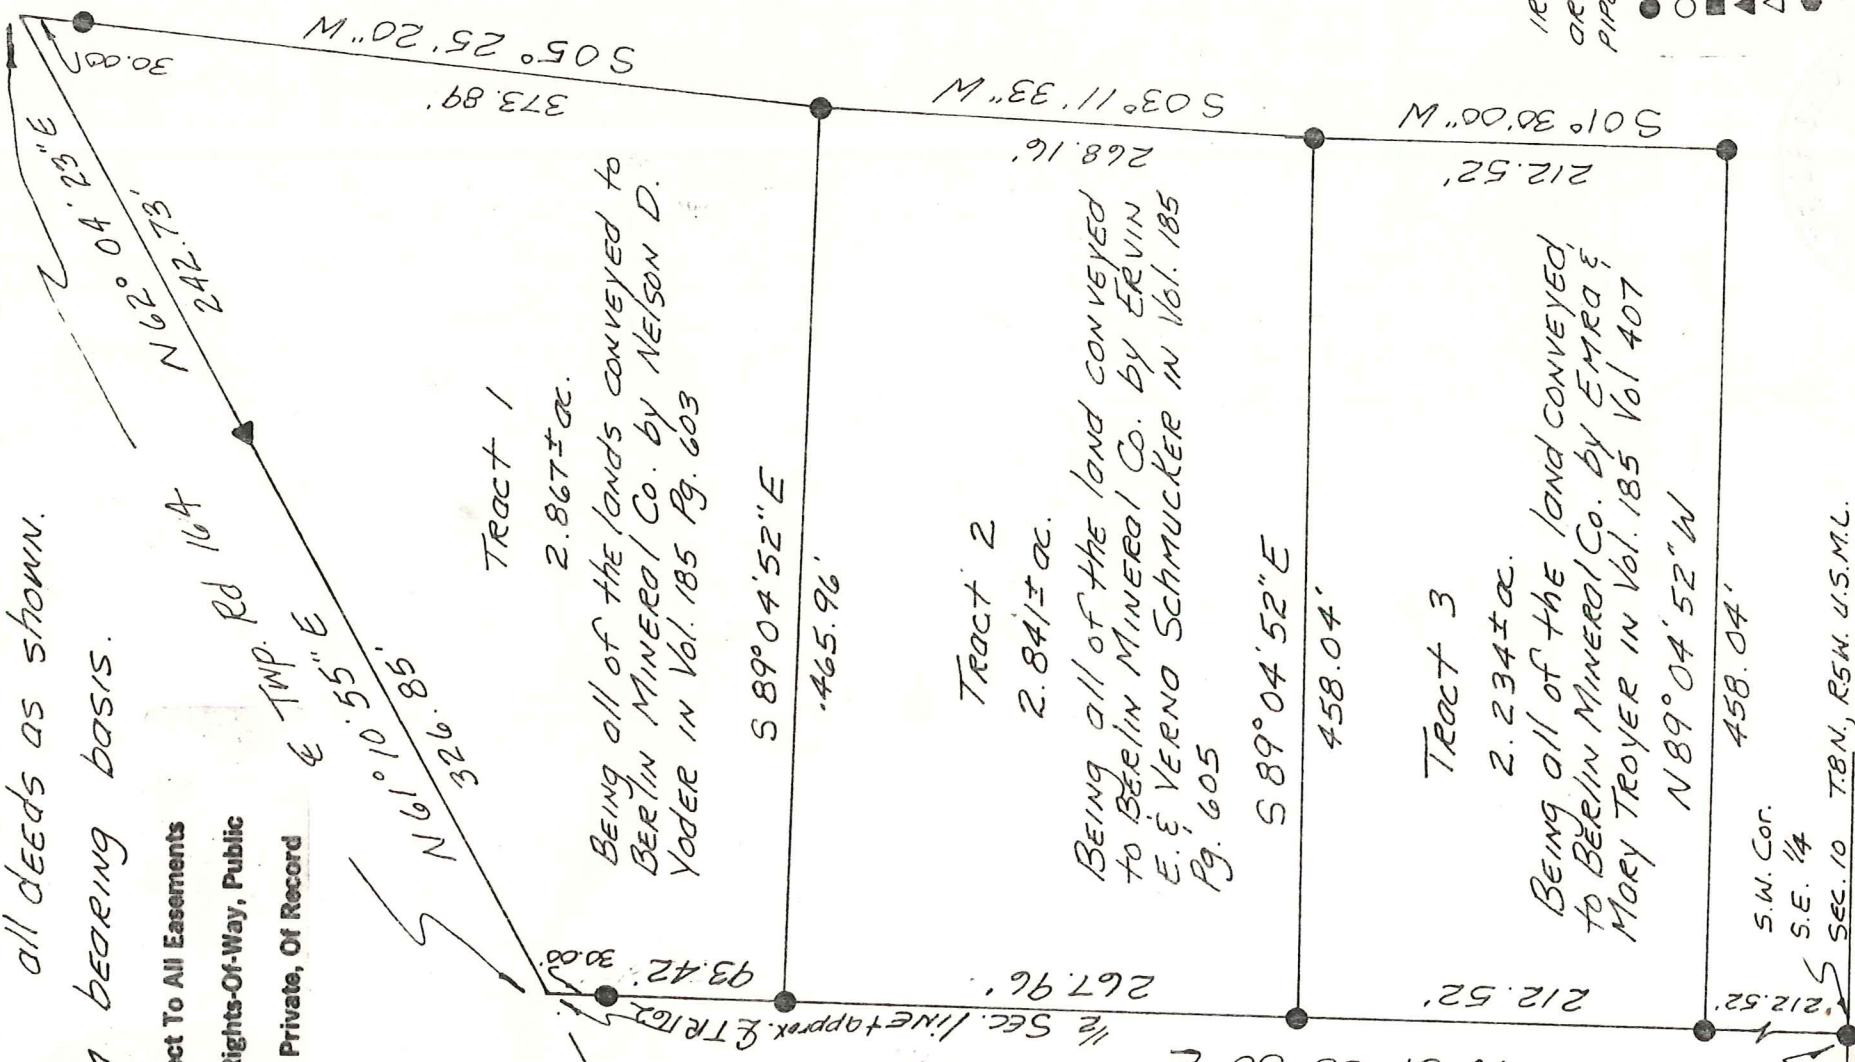 all deeds as shown.
bearing basis.
ct To All Easements
Rights-Of-Way, Public
Private, Of Record
30.00'
N 62° 04' 23" E
242.73'
℄ TWP. Rd 164
N 61° 10' 55" E
326.85'
S 05° 25' 20" W
373.89'
S 03° 11' 33" W
268.16'
S 01° 30' 00" W
212.52'
Tract 1
2.867± ac.
Being all of the lands conveyed to
Berlin Mineral Co. by Nelson D.
Yoder in Vol. 185 Pg. 603
S 89° 04' 52" E
465.96'
Tract 2
2.841± ac.
Being all of the land conveyed
to Berlin Mineral Co. by Ervin
E. & Verno Schmucker in Vol. 185
Pg. 605
S 89° 04' 52" E
458.04'
Tract 3
2.234± ac.
Being all of the land conveyed
to Berlin Mineral Co. by Emra &
Mary Troyer in Vol. 185 Vol 407
N 89° 04' 52" W
458.04'
30.00'
93.42'
267.96'
212.52'
212.52'
1/2 Sec. line & approx. ℄ TR 162
S.W. Cor.
S.E. 1/4
Sec. 10 T8N., R5W. U.S.M.L.